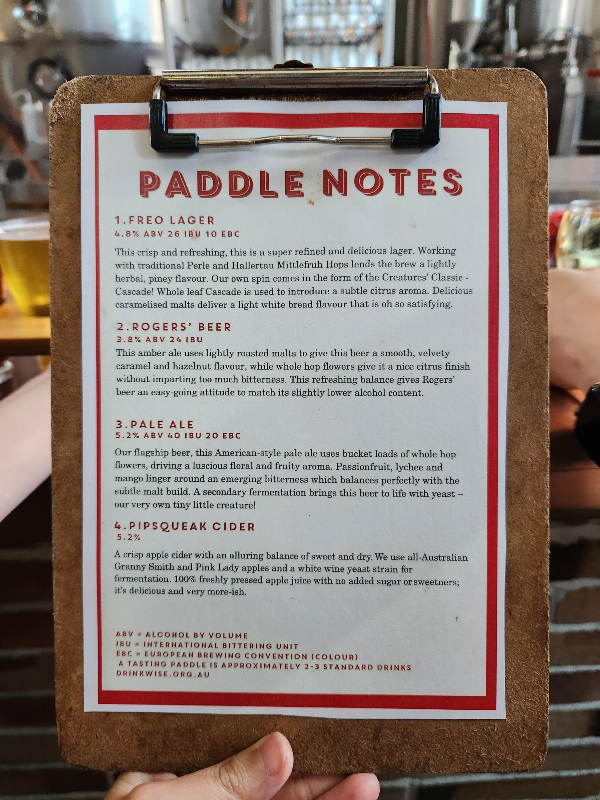 PADDLE NOTES
1.FREO LAGER
4.8% ABV 26 IBU 10 EBC
This crisp and refreshing, this is a super refined and delicious lager. Working
with traditional Perle and Hallertau Mittlefruh Hops lends the brew a lightly
herbal, piney flavour. Our own spin comes in the form of the Creatures' Classic -
Cascade! Whole leaf Cascade is used to introduce a subtle citrus aroma. Delicious
caramelised malts deliver a light white bread flavour that is oh so satisfying.
2.ROGERS' BEER
3.8% ABV 24 IBU
This amber ale uses lightly roasted malts to give this beer a smooth, velvety
caramel and hazelnut flavour, while whole hop flowers give it a nice citrus finish
without imparting too much bitterness. This refreshing balance gives Rogers'
beer an easy-going attitude to match its slightly lower alcohol content.
3.PALE ALE
5.2% ABV 40 IBU 20 EBC
Our flagship beer, this American-style pale ale uses bucket loads of whole hop
flowers, driving a luscious floral and fruity aroma. Passionfruit, lychee and
mango linger around an emerging bitterness which balances perfectly with the
subtle malt build. A secondary fermentation brings this beer to life with yeast –
our very own tiny little creature!
4.PIPSQUEAK CIDER
5.2%
A crisp apple cider with an alluring balance of sweet and dry. We use all-Australian
Granny Smith and Pink Lady apples and a white wine yeast strain for
fermentation. 100% freshly pressed apple juice with no added sugar or sweeteners;
it's delicious and very more-ish.
ABV = ALCOHOL BY VOLUME
IBU = INTERNATIONAL BITTERING UNIT
EBC = EUROPEAN BREWING CONVENTION (COLOUR)
A TASTING PADDLE IS APPROXIMATELY 2-3 STANDARD DRINKS
DRINKWISE.ORG.AU